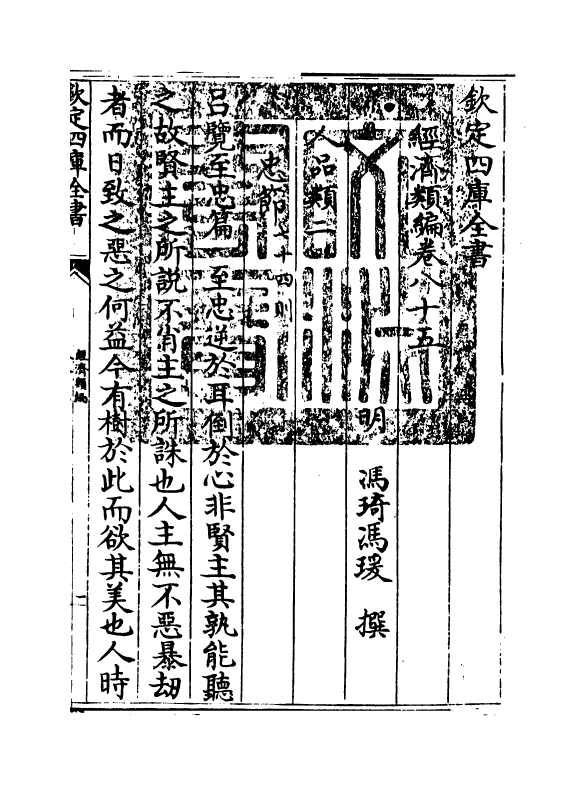 欽定四庫全書
經濟類編卷八十五
明 馮琦馮瑗 撰
人品類二
忠節七十四則
呂覽至忠篇 至忠逆於耳倒於心非賢主其孰能聽
之故賢主之所說不肖主之所誅也人主無不惡暴劫
者而日致之惡之何益今有樹於此而欲其美也人時
欽定四庫全書
經濟類編